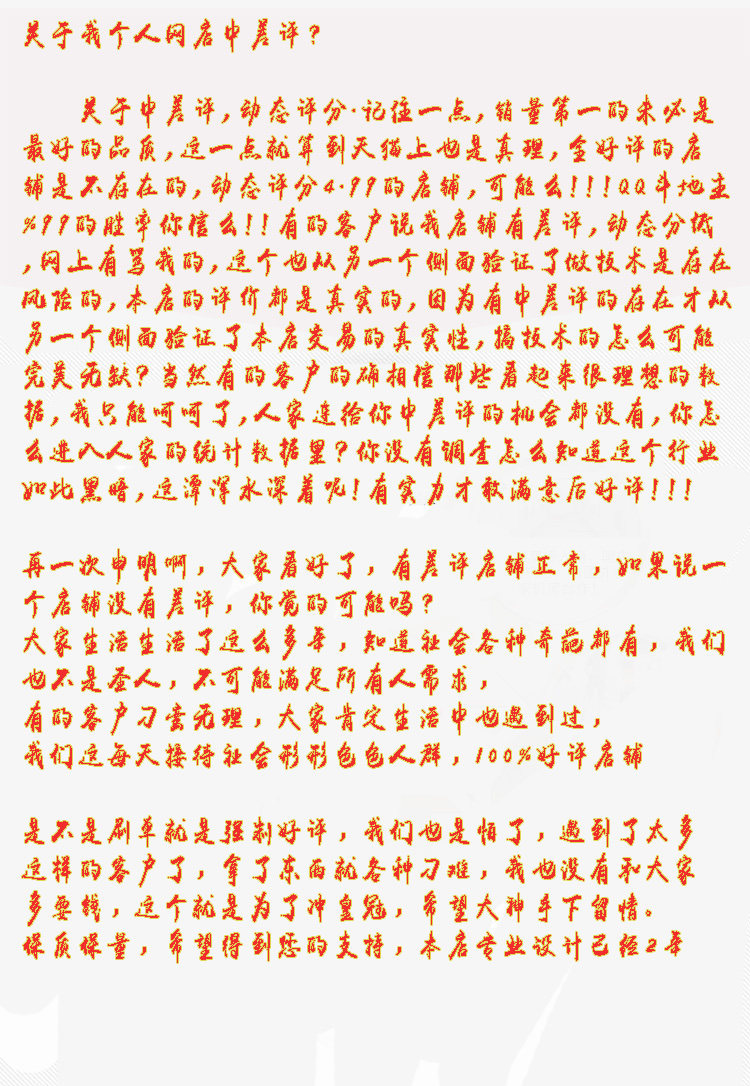 关于我个人网店中差评？
关于中差评，动态评分.记住一点，销量第一的未必是
最好的品质，这一点就算到天猫上也是真理，全好评的店
铺是不存在的，动态评分4.99的店铺，可能么！！！QQ斗地主
%99的胜率你信么！！有的客户说我店铺有差评，动态分低
，网上有骂我的，这个也从另一个侧面验证了做技术是存在
风险的，本店的评价都是真实的，因为有中差评的存在才从
另一个侧面验证了本店交易的真实性，搞技术的怎么可能
完美无缺？当然有的客户的确相信那些看起来很理想的数
据，我只能呵呵了，人家连给你中差评的机会都没有，你怎
么进入人家的统计数据里？你没有调查怎么知道这个行业
如此黑暗，这潭浑水深着呢！有实力才敢满意后好评！！！
再一次申明啊，大家看好了，有差评店铺正常，如果说一
个店铺没有差评，你觉的可能吗？
大家生活生活了这么多年，知道社会各种奇葩都有，我们
也不是圣人，不可能满足所有人需求，
有的客户刁蛮无理，大家肯定生活中也遇到过，
我们这每天接待社会形形色色人群，100%好评店铺
是不是刷单就是强制好评，我们也是怕了，遇到了太多
这样的客户了，拿了东西就各种刁难，我也没有和大家
多要钱，这个就是为了冲皇冠，希望大神手下留情。
保质保量，希望得到您的支持，本店专业设计已经2年